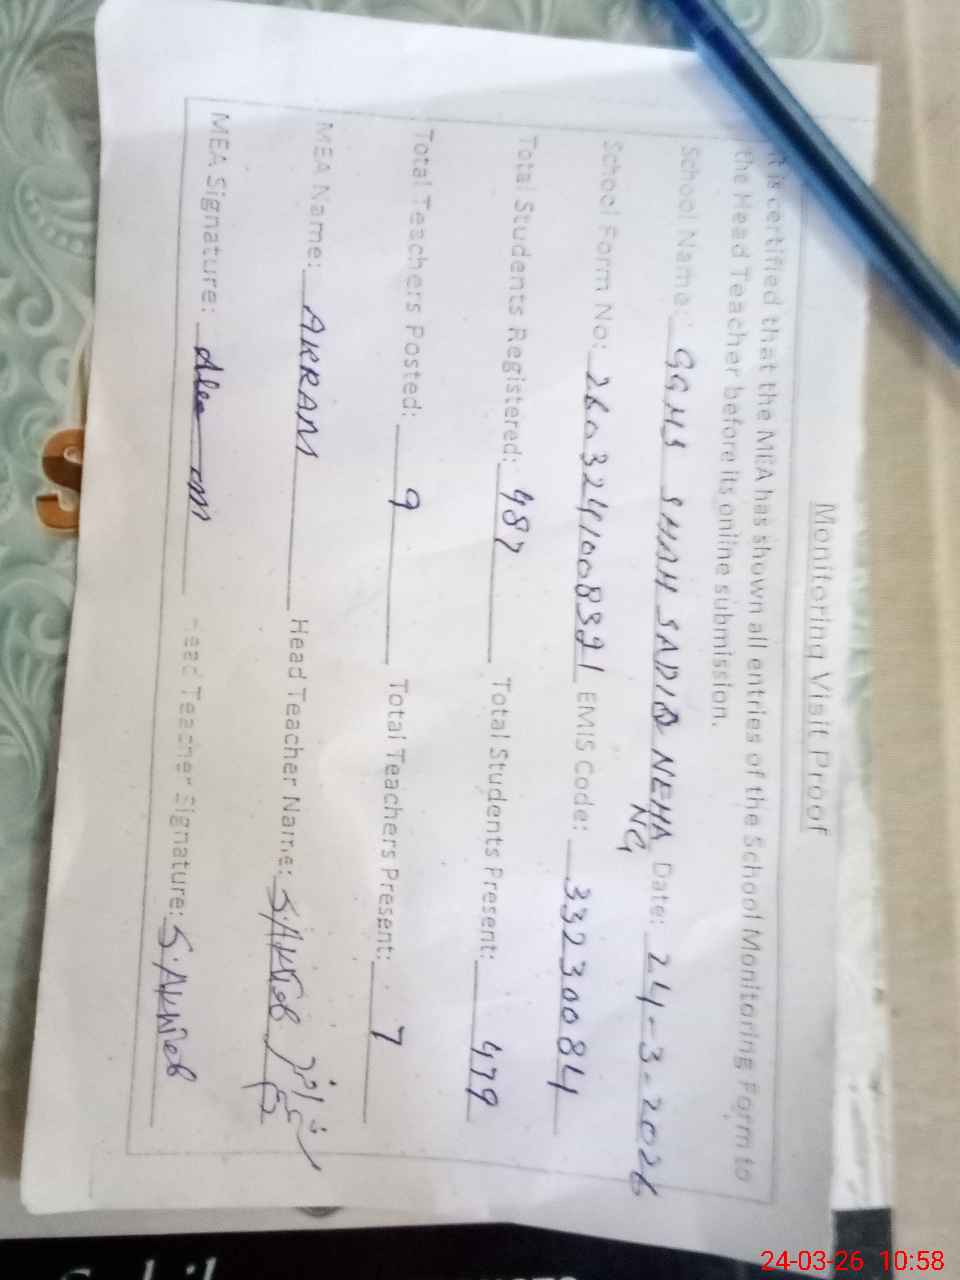 Monitoring Visit Proof
It is certified that the MEA has shown all entries of the School Monitoring Form to
the Head Teacher before its online submission.
School Name: GGHS SHAH SADIQ NEHA Date: 24-3-2026
NG
School Form No: 2603241008321 EMIS Code: 33230084
Total Students Registered: 487 Total Students Present: 479
Total Teachers Posted: 9 Total Teachers Present: 7
MEA Name: AKRAM Head Teacher Name:
MEA Signature: Head Teacher Signature:
S
24-03-26 10:58